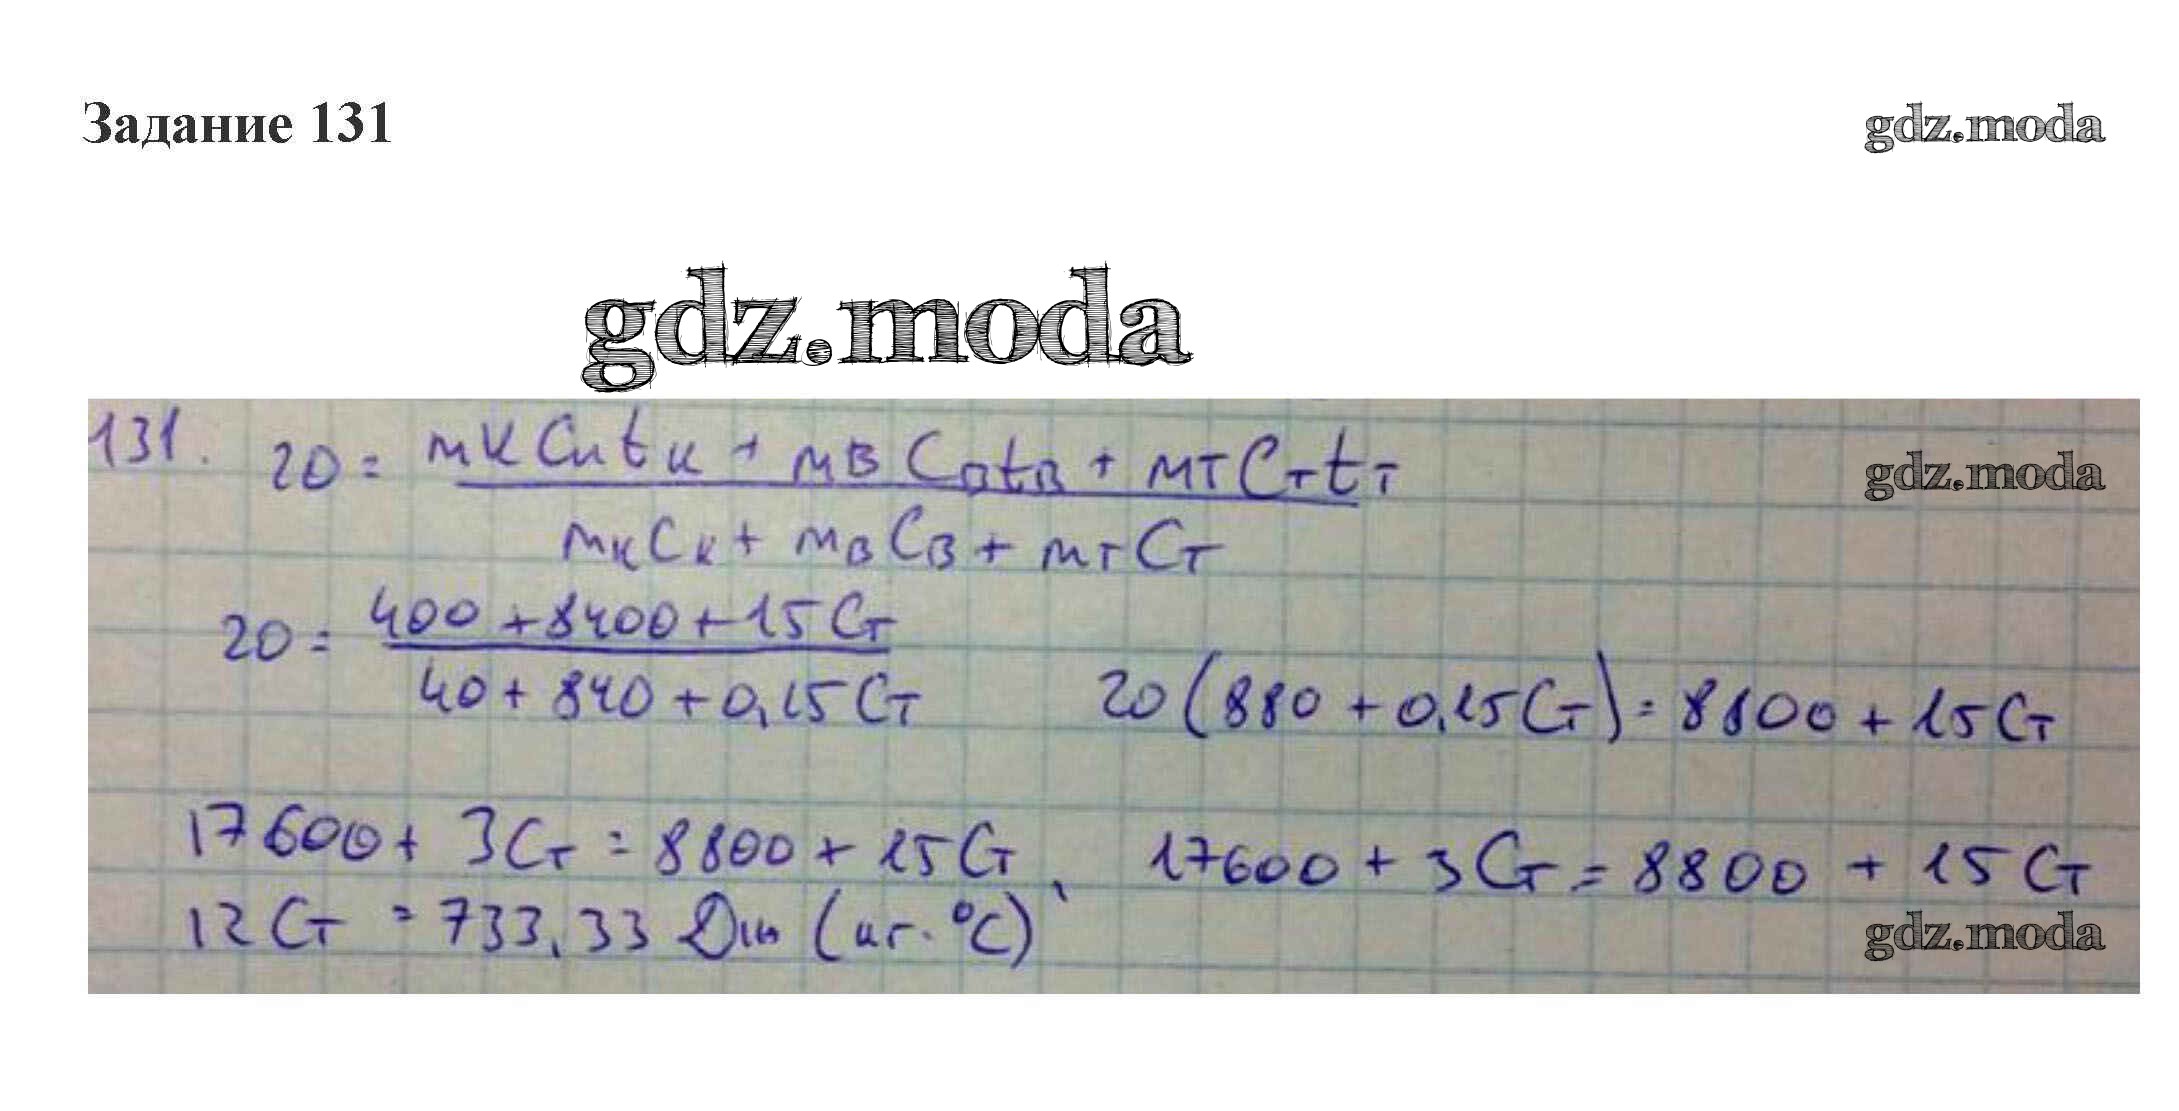 Задание 131
gdz.moda
gdz.moda
131. 20 = mк Cк tк + mв Cв tв + mт Cт tт
gdz.moda
mк Cк + mв Cв + mт Cт
20 = 400 + 8400 + 15 Cт
40 + 840 + 0,15 Cт
20 (880 + 0,15 Cт) = 8800 + 15 Cт
17600 + 3 Cт = 8800 + 15 Cт,
17600 + 3 Cт = 8800 + 15 Cт
12 Cт = 733,33 Дж (кг·°C)
gdz.moda